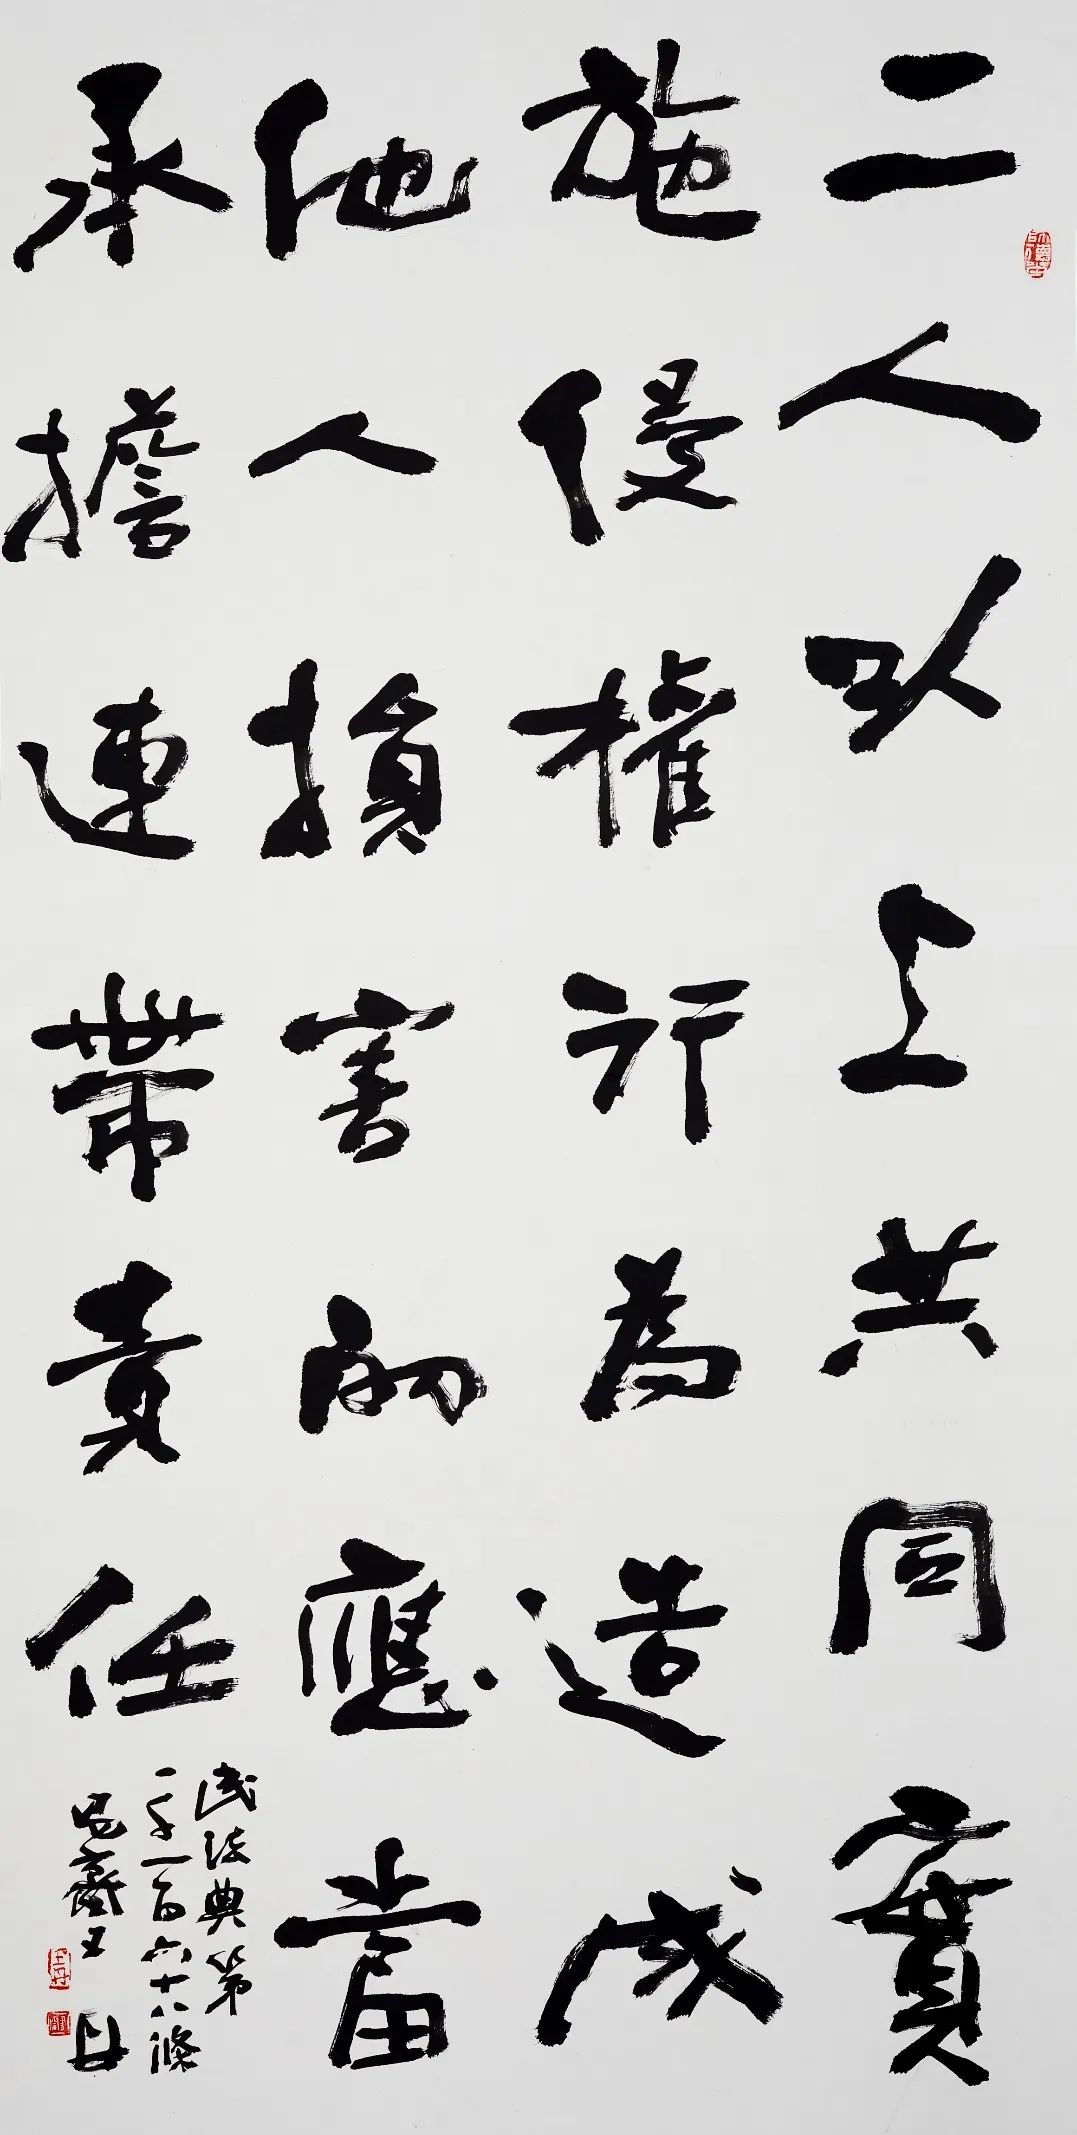 二人以上共同實
施侵權行為造成
他人損害的應當
承擔連帶責任
民法典第
一千一百六十八條
齋王丹